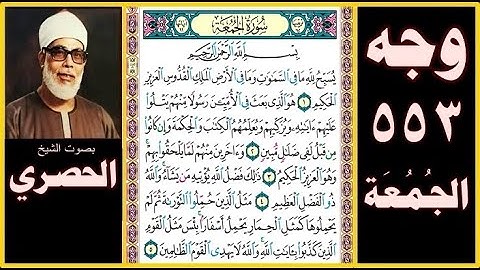 وجه
٥٥٣
الجُمُعَة
بصوت الشيخ
الحصري
سُورَةُ الْجُمُعَةِ
بِسْمِ اللَّهِ الرَّحْمَٰنِ الرَّحِيمِ
يُسَبِّحُ لِلَّهِ مَا فِي السَّمَٰوَٰتِ وَمَا فِي الْأَرْضِ الْمَلِكِ الْقُدُّوسِ الْعَزِيزِ
الْحَكِيمِ ١ هُوَ الَّذِي بَعَثَ فِي الْأُمِّيِّينَ رَسُولًا مِنْهُمْ يَتْلُوا
عَلَيْهِمْ ءَايَٰتِهِ وَيُزَكِّيهِمْ وَيُعَلِّمُهُمُ الْكِتَٰبَ وَالْحِكْمَةَ وَإِنْ كَانُوا
مِنْ قَبْلُ لَفِي ضَلَٰلٍ مُبِينٍ ٢ وَءَاخَرِينَ مِنْهُمْ لَمَّا يَلْحَقُوا بِهِمْ
وَهُوَ الْعَزِيزُ الْحَكِيمُ ٣ ذَٰلِكَ فَضْلُ اللَّهِ يُؤْتِيهِ مَنْ يَشَاءُ وَاللَّهُ
ذُو الْفَضْلِ الْعَظِيمِ ٤ مَثَلُ الَّذِينَ حُمِّلُوا التَّوْرَىٰةَ ثُمَّ لَمْ
يَحْمِلُوهَا كَمَثَلِ الْحِمَارِ يَحْمِلُ أَسْفَارًا بِئْسَ مَثَلُ الْقَوْمِ
الَّذِينَ كَذَّبُوا بِـَٔايَٰتِ اللَّهِ وَاللَّهُ لَا يَهْدِي الْقَوْمَ الظَّٰلِمِينَ ٥